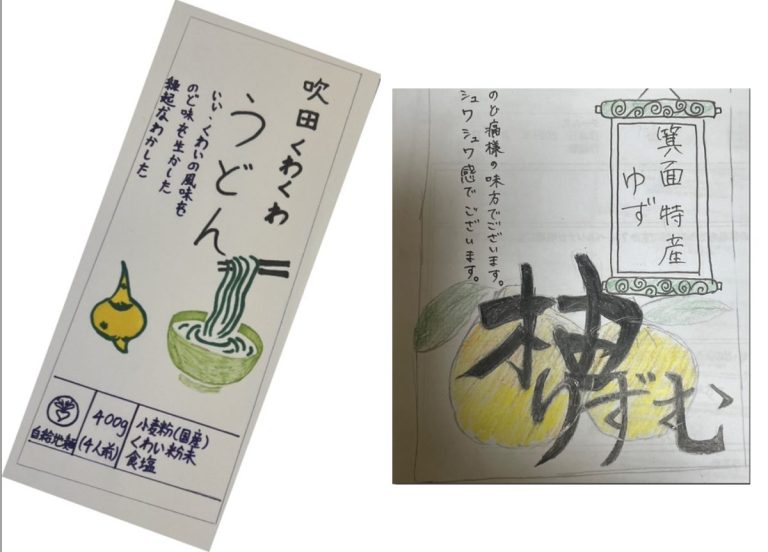 吹田くわくわ
うどん
いい・くわいの風味も
のど味も生かした
縁起なわかした
自給地麺
400g
(4人前)
小麦粉(国産)
くわい粉末
食塩
箕面特産
ゆず
のど病様の味方でございます。
シュワシュワ感でございます。
柚りずむ